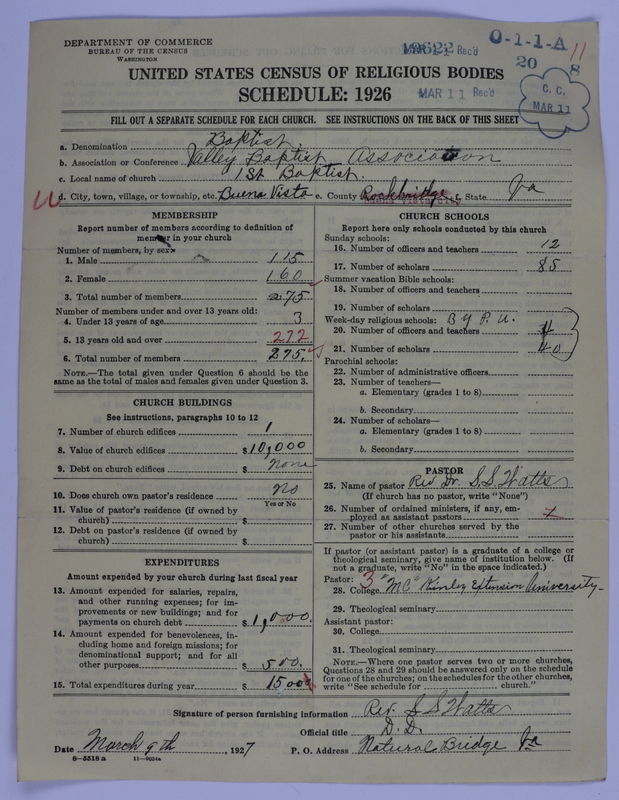 DEPARTMENT OF COMMERCE
BUREAU OF THE CENSUS
WASHINGTON
Rec'd
O-1-1-A
11
20 8
UNITED STATES CENSUS OF RELIGIOUS BODIES
SCHEDULE: 1926
MAR 11 Rec'd
C. C.
MAR 11
FILL OUT A SEPARATE SCHEDULE FOR EACH CHURCH. SEE INSTRUCTIONS ON THE BACK OF THIS SHEET
a. Denomination Baptist
b. Association or Conference Valley Baptist Association
c. Local name of church 1st Baptist.
d. City, town, village, or township, etc. Buena Vista e. County Rockbridge f. State Va
MEMBERSHIP
Report number of members according to definition of
member in your church
Number of members, by sex:
1. Male 115
2. Female 160
3. Total number of members 275
Number of members under and over 13 years old:
4. Under 13 years of age 3
5. 13 years old and over 272
6. Total number of members 275.
NOTE.—The total given under Question 6 should be the
same as the total of males and females given under Question 3.
CHURCH BUILDINGS
See instructions, paragraphs 10 to 12
7. Number of church edifices 1
8. Value of church edifices $10,000
9. Debt on church edifices $ none
10. Does church own pastor's residence no
Yes or No
11. Value of pastor's residence (if owned by
church) $
12. Debt on pastor's residence (if owned by
church) $
EXPENDITURES
Amount expended by your church during last fiscal year
13. Amount expended for salaries, repairs,
and other running expenses; for im-
provements or new buildings; and for
payments on church debt $ 1,000.
14. Amount expended for benevolences, in-
cluding home and foreign missions; for
denominational support; and for all
other purposes $ 500.
15. Total expenditures during year $ 1500
CHURCH SCHOOLS
Report here only schools conducted by this church
Sunday schools:
16. Number of officers and teachers 12
17. Number of scholars 85
Summer vacation Bible schools:
18. Number of officers and teachers
19. Number of scholars
Week-day religious schools: B Y P. U.
20. Number of officers and teachers 4
21. Number of scholars 40
Parochial schools:
22. Number of administrative officers
23. Number of teachers—
a. Elementary (grades 1 to 8)
b. Secondary
24. Number of scholars—
a. Elementary (grades 1 to 8)
b. Secondary
PASTOR
25. Name of pastor Rev Dr. S.S. Watts
(If church has no pastor, write "None")
26. Number of ordained ministers, if any, em-
ployed as assistant pastors
27. Number of other churches served by the
pastor or his assistants
If pastor (or assistant pastor) is a graduate of a college or
theological seminary, give name of institution below. (If
not a graduate, write "No" in the space indicated.)
Pastor: 3
28. College "Mc" Kinley Extension University
29. Theological seminary
Assistant pastor:
30. College
31. Theological seminary
NOTE.—Where one pastor serves two or more churches,
Questions 28 and 29 should be answered only on the schedule
for one of the churches; on the schedules for the other churches,
write "See schedule for church."
Signature of person furnishing information Rev. S S Watts
Official title D. D.
Date March 9th, 1927 P. O. Address Natural Bridge Va
8—5518 a 11—9034a